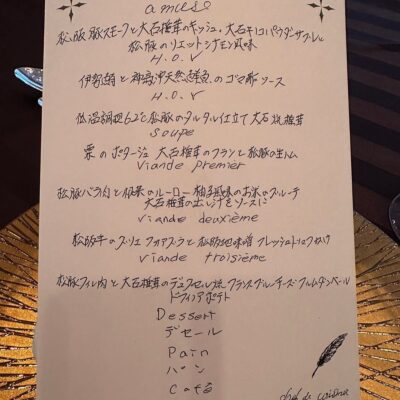 amuse
松阪豚スモークと大石椎茸のキッシュ・大石キノコパウダーサブレと
松阪のリエットシナモン風味
H.O.V
伊勢鯖と神島沖天然 のゴマ酢ソース
H.O.V
低温調理62℃松阪のタルタル仕立て 大石焼椎茸
soupe
栗のポタージュ 大石椎茸のフランと松阪の生ハム
viande premier
松阪バラ肉と のルーロー 柚子風味のお米のブルーテ
大石椎茸の出し汁をソースに
viande deuxième
松阪牛のグリエ フォアグラと松阪地味噌 フレッシュトリュフ
viande troisième
松阪フィレ肉と大石椎茸のデュクセル フランスブルーチーズフルムダンベール
ドフィノアポテト
Dessert
デセール
Pain
パン
Café
chef de cuisine